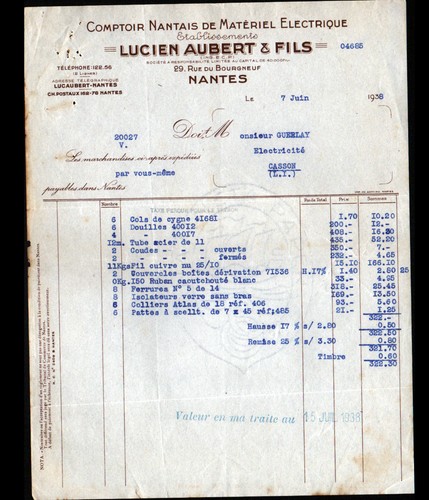 COMPTOIR NANTAIS DE MATÉRIEL ELECTRIQUE
Etablissements
LUCIEN AUBERT & FILS
(ING. E.C.P.)
04685
SOCIÉTÉ A RESPONSABILITÉ LIMITÉE AU CAPITAL DE
29, RUE DU BOURGNEUF
NANTES
TÉLÉPHONE: 122.56
(2 LIGNES)
ADRESSE TÉLÉGRAPHIQUE
LUCAUBERT-NANTES
CH. POSTAUX 168-76 NANTES
LE 7 Juin 1938
20027
V.
Doit M onsieur GUERLAY
Electricité
CASSON
(L.I.)
Les marchandises ci-après expédiées
par vous-même
payables dans Nantes
Nombre Prix Sommes
6 Cols de cygne 41681 1.70 10.20
6 Douilles 40012 200.- 12.-
4 - 40017 408.- 16.30
12m. Tube acier de 11 435.- 52.20
2 Coudes - - ouverts 350.- 7.-
2 - - - fermés 232.- 4.65
11Kgs Fil cuivre nu 25/10 15.10 166.10
2 Couvercles boîtes dérivation 71536 H.17% 1.40 2.80 25
0Kg.150 Ruban caoutchouté blanc 33.- 4.95
8 Ferrures N° 5 de 14 318.- 25.45
8 Isolateurs verre sans bras 169.- 13.50
6 Colliers Atlas de 18 réf. 406 93.- 5.60
6 Pattes à scellt. de 7 x 45 réf;485 21.- 1.25
322.-
Hausse 17 % s/ 2.80 0.50
322.50
Remise 25 % s/ 3.30 0.80
321.70
Timbre 0.60
322.30
Valeur en ma traite au 15 JUIL 1938